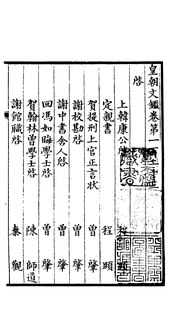 皇朝文鑑卷第一
啓
上韓康公
定親書 程頤
賀提刑上官正言狀
謝校勘啓 曾肇
謝中書舍人啓 曾肇
回馮如晦學士啓 曾肇
賀翰林曾學士啓 陳師道
謝館職啓 秦觀